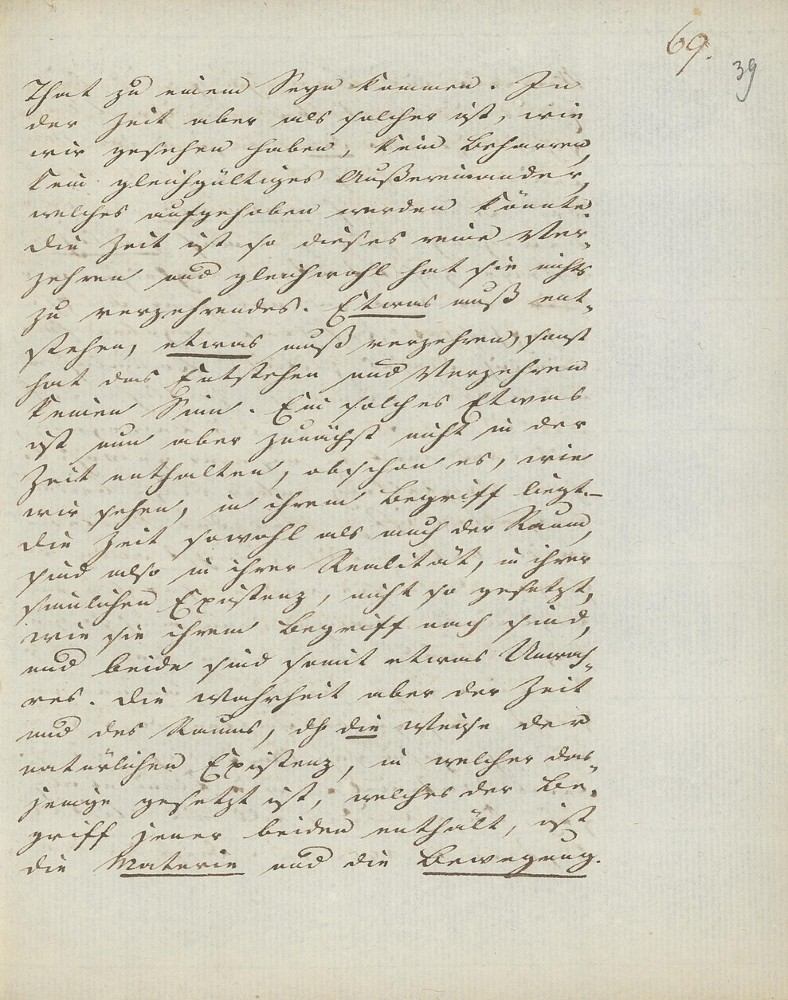 69.
39
That zu einem Seyn kommen. In
der Zeit aber als solcher ist, wie
wir gesehen haben, kein Beharren,
kein gleichgültiges Außereinander,
welches aufgehoben werden könnte.
Die Zeit ist so dieses reine Ver-
zehren und gleichwohl hat sie nichts
zu verzehrendes. Etwas muß ent-
stehen, etwas muß verzehren, sonst
hat das Entstehen und Verzehren
keinen Sinn. Ein solches Etwas
ist nun aber zunächst nicht in der
Zeit enthalten, obschon es, wie
wir sehen, in ihrem Begriff liegt.–
Die Zeit sowohl als auch der Raum,
sind also in ihrer Realität, in ihrer
sinnlichen Existenz, nicht so gesetzt,
wie sie ihrem Begriff nach sind,
und beide sind somit etwas Unwah-
res. Die Wahrheit aber der Zeit
und des Raums, dh die Weise der
natürlichen Existenz, in welcher das-
jenige gesetzt ist, welches der Be-
griff jener beiden enthält, ist
die Materie und die Bewegung.